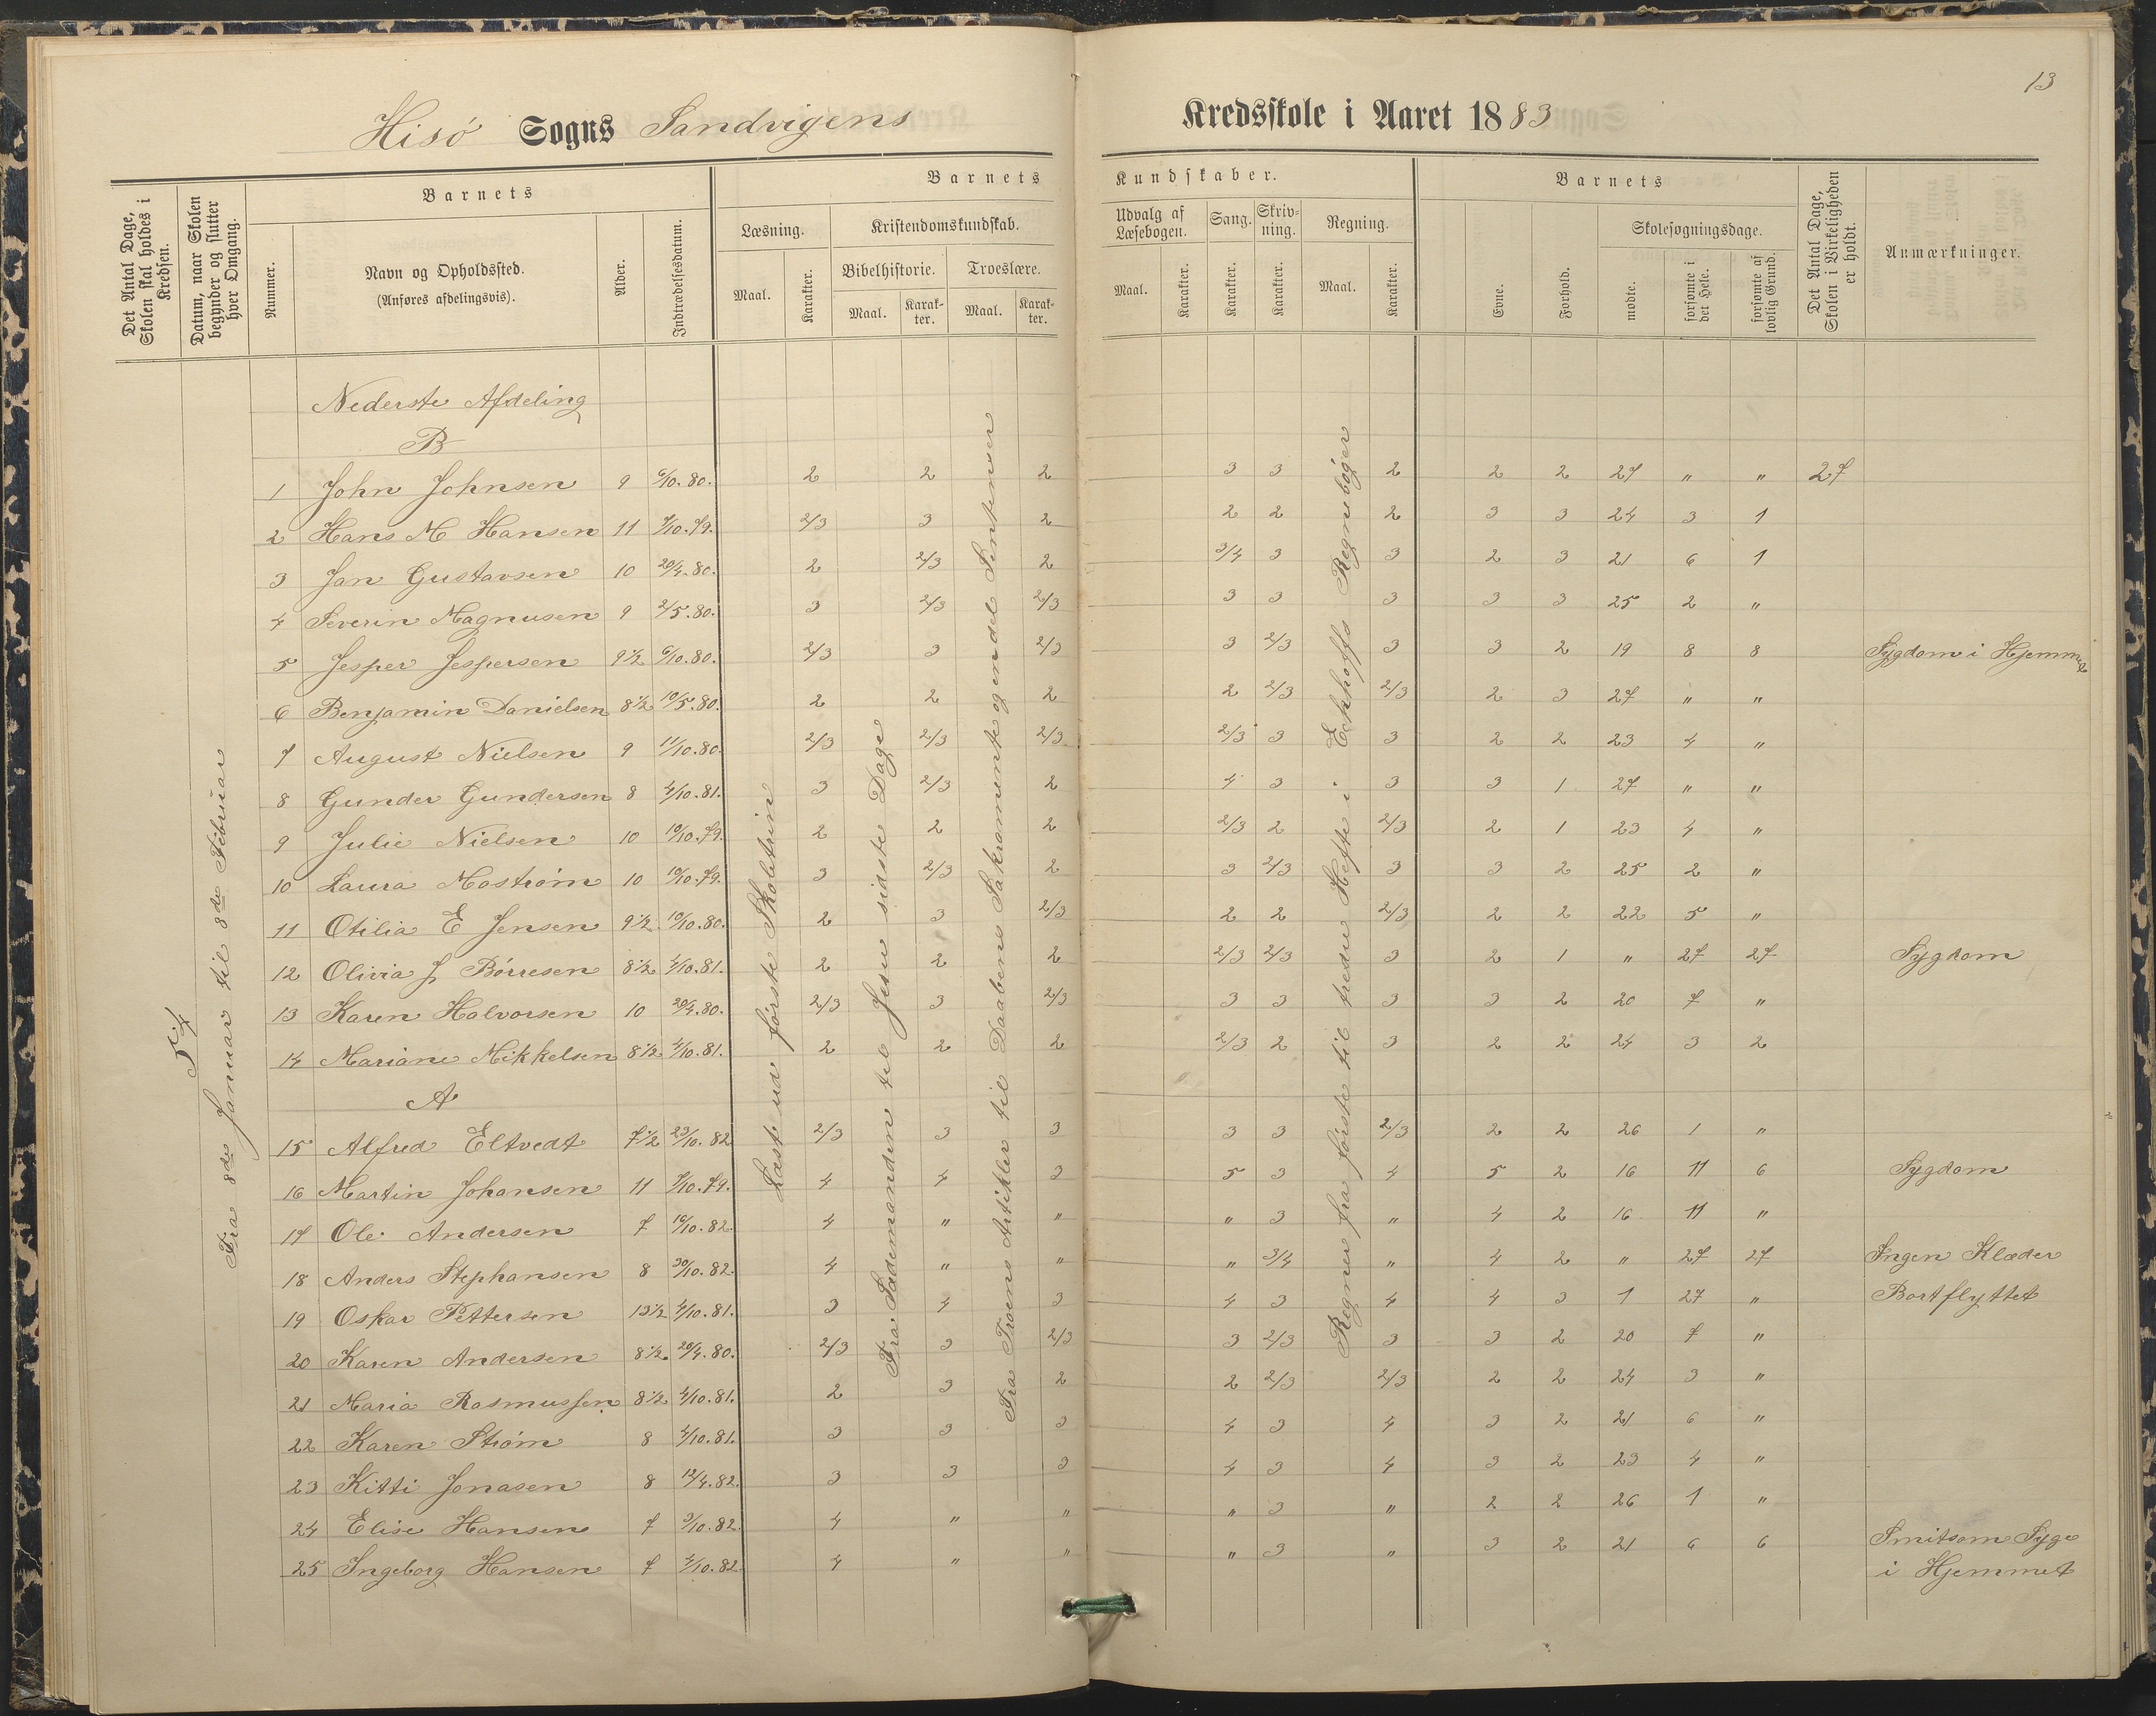 13
Hisö Sogns Sandvigens Kredsskole i Aaret 1883
Det Antal Dage, Skolen skal holdes i Kredsen.
Datum, naar Skolen begynder og slutter hver Omgang.
Barnets
Nummer.
Navn og Opholdssted.
(Anføres afdelingsvis).
Alder.
Indtrædelsesdatum.
Barnets Kundskaber.
Læsning.
Maal.
Karakter.
Kristendomskundskab.
Bibelhistorie.
Maal.
Karakter.
Troeslære.
Maal.
Karakter.
Udvalg af Læsebogen.
Maal.
Karakter.
Sang.
Karakter.
Skrivning.
Karakter.
Regning.
Maal.
Karakter.
Barnets
Evne.
Forhold.
Skolesøgningsdage.
mødte.
forsømte i det Hele.
forsømte af lovlig Grund.
Det Antal Dage, Skolen i Virkeligheden er holdt.
Anmærkninger.
54
Fra 8de Januar til 8de Februar
Læst ud første Skoletrin
Fra Sædemanden til Jesu sidste Dage
Fra Troens Artikler til Daabens Sakramente og endel Sentenser
Regner fra første til tredie Hefte i Eckhoffs Regnebøger
Nederste Afdeling
B
1 John Johnsen 9 6/10.80. 2 2 2 3 3 2 2 2 27 " " 27
2 Hans M Hansen 11 7/10.79. 2/3 3 2 2 2 2 3 3 24 3 1
3 Jan Gustavsen 10 20/4.80. 2 2/3 2 3/4 3 3 2 3 21 6 1
4 Severin Magnusen 9 2/5.80. 3 2/3 2/3 3 3 3 3 3 25 2 "
5 Jesper Jespersen 9 1/2 6/10.80. 2/3 3 2/3 3 2/3 3 3 2 19 8 8 Sygdom i Hjemmet
6 Benjamin Danielsen 8 1/2 10/5.80. 2 2 2 2 2/3 2/3 2 3 27 " "
7 August Nielsen 9 11/10.80. 2/3 2/3 2/3 2/3 3 3 2 2 23 4 "
8 Gunder Gundersen 8 4/10.81. 3 2/3 2 4 3 3 3 1 27 " "
9 Julie Nielsen 10 10/10.79. 2 2 2 2/3 2 2/3 2 1 23 4 "
10 Laura Mostrøm 10 10/10.79. 3 2/3 2 3 2/3 3 3 2 25 2 "
11 Otilia E Jensen 9 1/2 10/10.80. 2 3 2/3 2 2 2/3 2 2 22 5 "
12 Olivia J Børresen 8 1/2 4/10.81. 2 2 2 2/3 2/3 3 2 1 " 27 27 Sygdom
13 Karen Halvorsen 10 20/4.80. 2/3 3 2/3 3 3 3 3 2 20 7 "
14 Mariane Mikkelsen 8 1/2 4/10.81. 2 2 2 2/3 2 3 2 2 24 3 2
A
15 Alfred Eltvedt 7 1/2 23/10.82 2/3 3 3 3 3 2/3 2 2 26 1 "
16 Martin Johansen 11 7/10.79. 4 4 3 5 3 4 5 2 16 11 6 Sygdom
17 Ole Andersen 7 16/10.82. 4 " " " 3 " 4 2 16 11 "
18 Anders Stephansen 8 30/10.82. 4 " " " 3/4 " 4 2 " 27 27 Ingen Klæder
19 Oskar Pettersen 13 1/2 4/10.81. 3 4 3 4 3 4 4 3 1 27 " Bortflyttet
20 Karen Andersen 8 1/2 20/4.80. 2/3 3 2/3 3 2/3 3 3 2 20 7 "
21 Maria Rasmussen 8 1/2 4/10.81. 2 3 2 2 2/3 2/3 2 2 24 3 "
22 Karen Strøm 8 4/10.81. 3 3 3 4 3 4 3 2 21 6 "
23 Kitti Jonasen 8 12/4.82. 3 3 3 4 3 4 3 2 23 4 "
24 Elise Hansen 7 3/10.82. 4 " " " 3 " 2 2 26 1 "
25 Ingeborg Hansen 7 4/10.82 4 " " " 3 " 3 2 21 6 6 Smitsom Syge
i Hjemmet